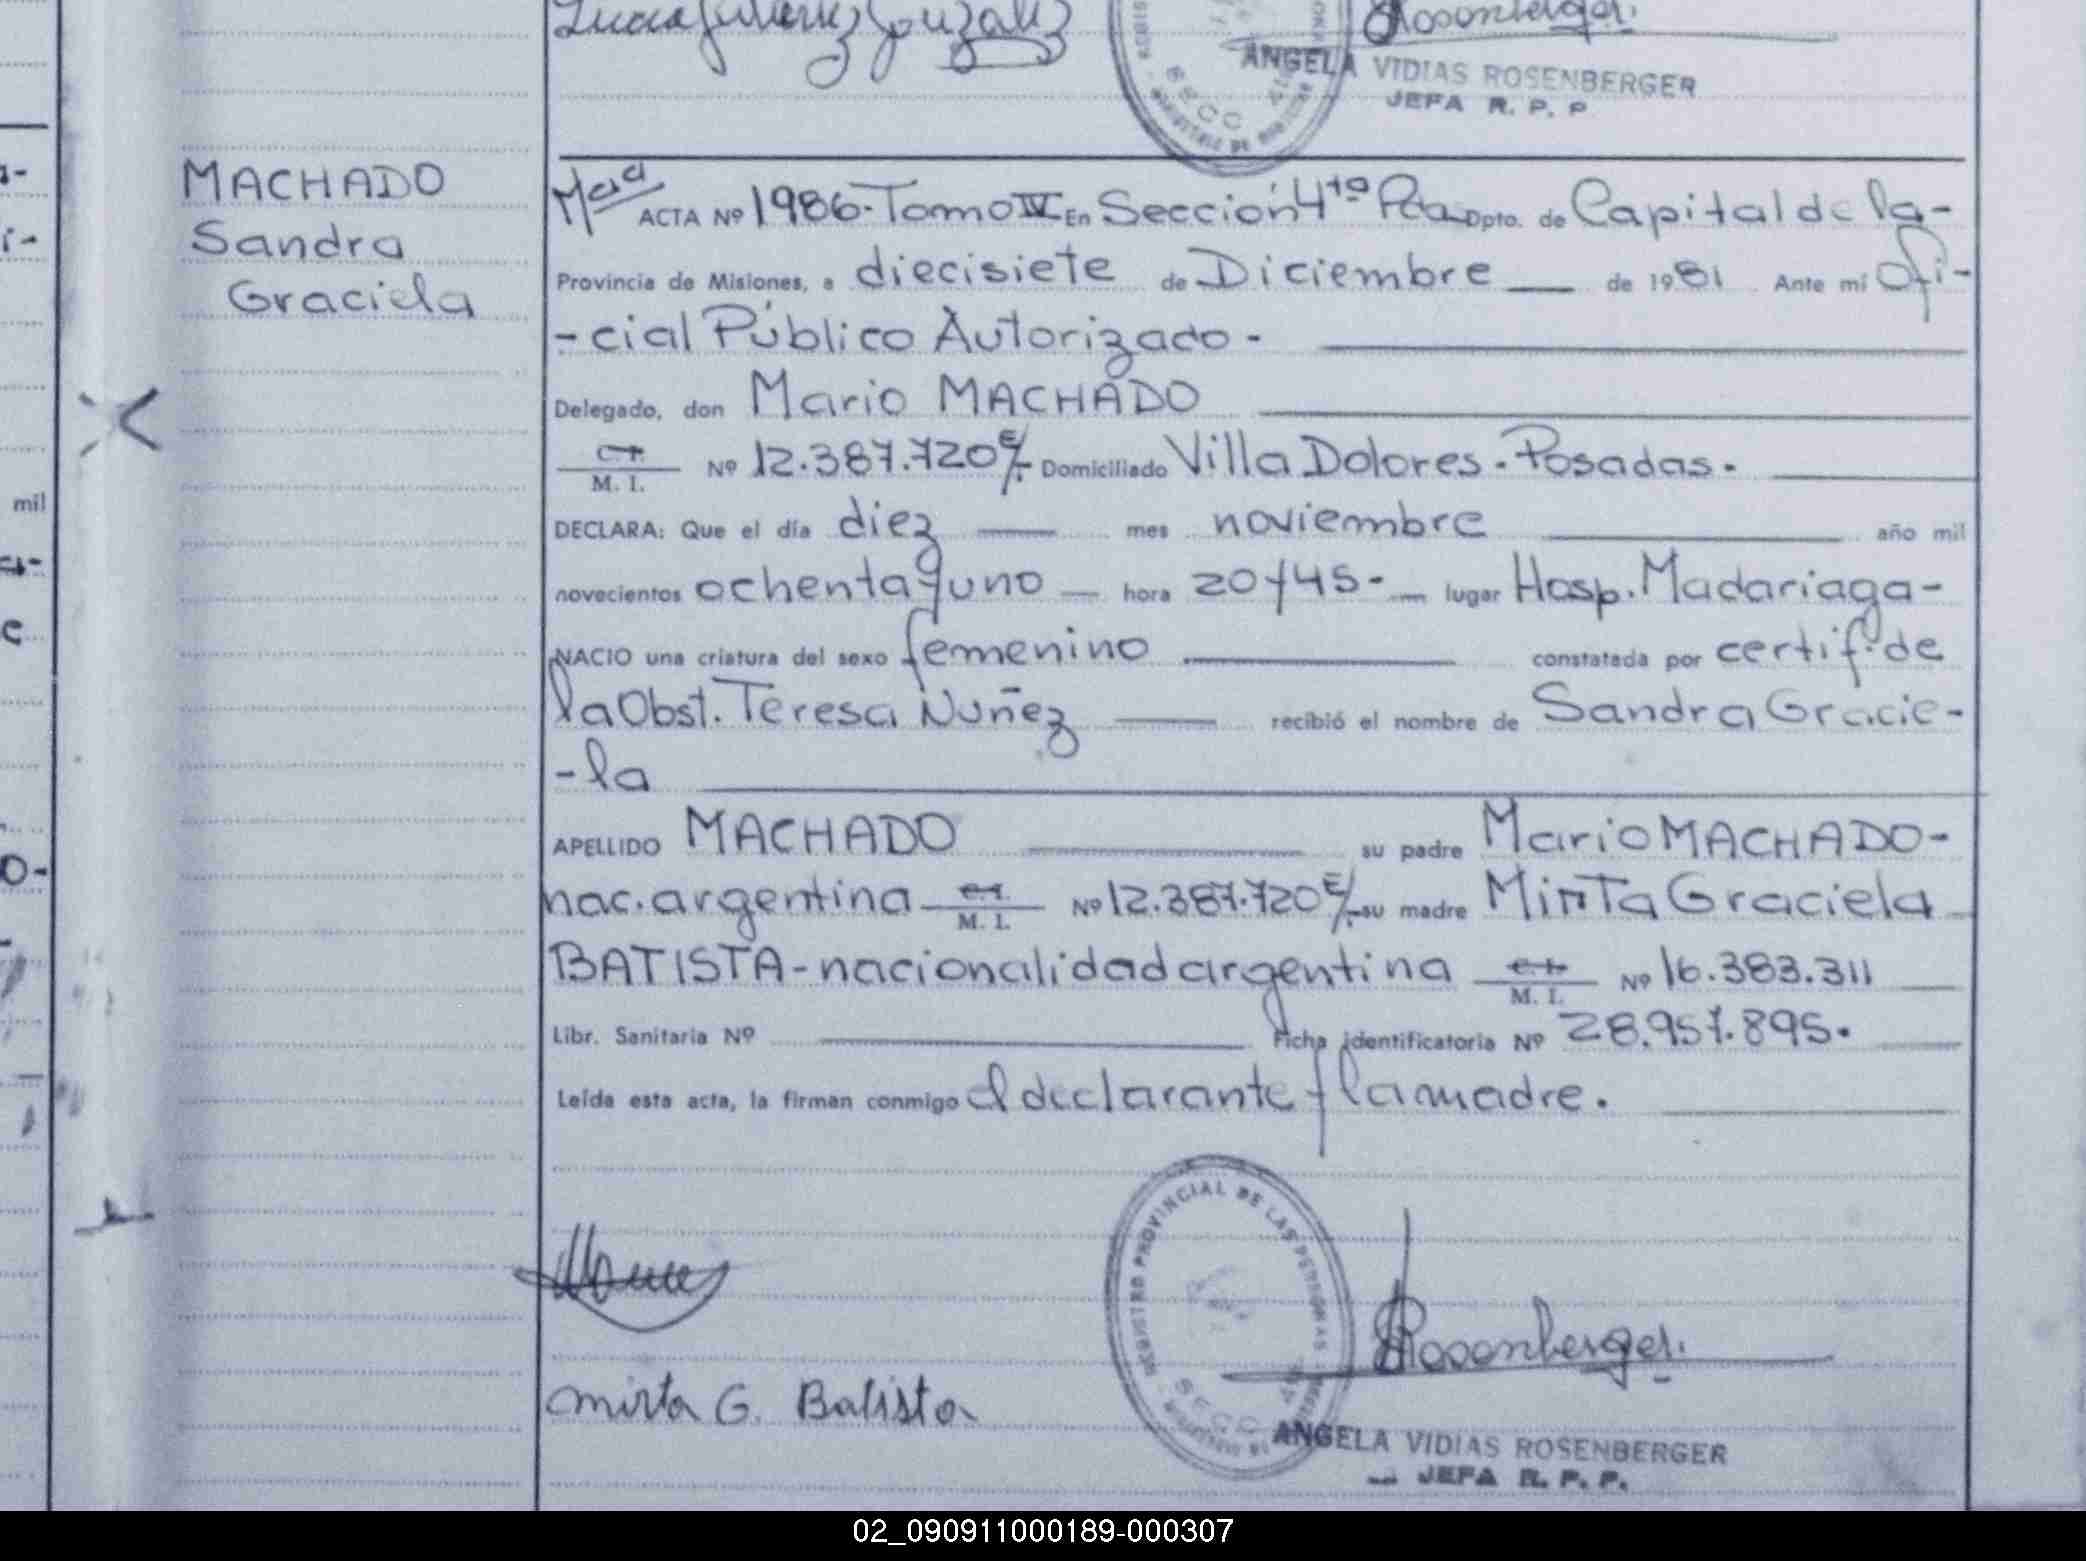 Lucia Gutierrez Gonzalez
Rosenberger.
ANGELA VIDIAS ROSENBERGER
JEFA R. P. P
MACHADO
Sandra
Graciela
mil
ACTA Nº 1986. Tomo IV En Sección 4ta Pdas Dpto. de Capital de la-
Provincia de Misiones, a diecisiete de Diciembre de 1981 Ante mí Ofi-
-cial Público Autorizado-
Delegado, don Mario MACHADO
M. I. Nº 12.387.720 E/. Domiciliado Villa Dolores. Posadas.
DECLARA: Que el día diez mes noviembre año mil
novecientos ochenta y uno hora 20 y 45- lugar Hosp. Madariaga-
NACIO una criatura del sexo femenino constatada por certif. de
la Obst. Teresa Nuñez recibió el nombre de Sandra Gracie-
-la
APELLIDO MACHADO su padre Mario MACHADO-
nac. argentina M. I. Nº 12.387.720 E/. su madre Mirta Graciela
BATISTA-nacionalidad argentina M. I. Nº 16.383.311
Libr. Sanitaria Nº Ficha identificatoria Nº 28.957.895.
Leída esta acta, la firman conmigo el declarante y la madre.
REGISTRO PROVINCIAL DE LAS PERSONAS
SECC 4ta
Rosenberger.
mirta G. Batista
ANGELA VIDIAS ROSENBERGER
JEFA R. P. P.
02_090911000189-000307